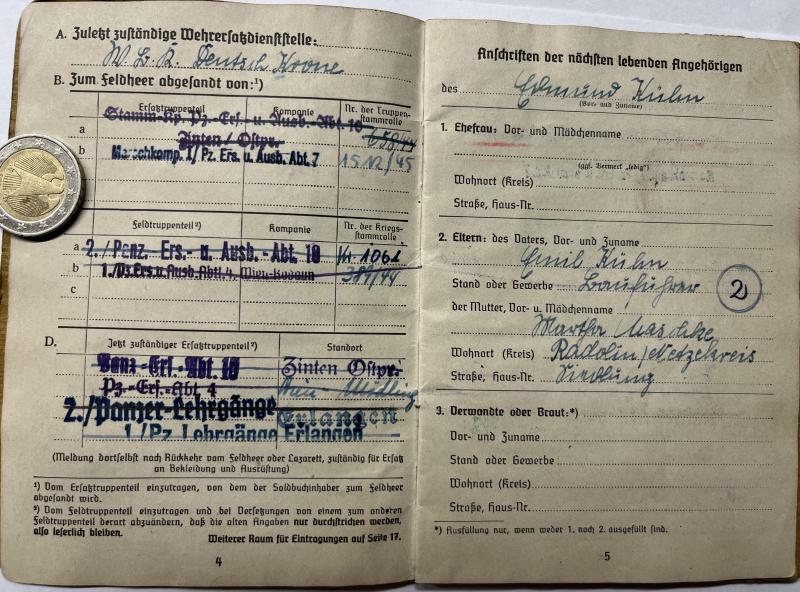 A. Zuletzt zuständige Wehrersatzdienststelle:
W. B. K. Deutsch Krone
B. Zum Feldheer abgesandt von:¹)
Ersatztruppenteil Kompanie Nr. der Truppen-
stammrolle
a Stamm-Kp. Pz.-Ers.- u. Ausb.-Abt. 10
Zinten / Ostpr. 658/44
b Marschkomp. 1/ Pz. Ers. u. Ausb. Abt. 7 1512/45
Feldtruppenteil²) Kompanie Nr. der Kriegs-
stammrolle
a 2. / Panz.- Ers.- u. Ausb.- Abt. 10 Nr. 1061
b 1./Pz.Ers.u.Ausb.Abtl.4, Wien-Rodaun 389/44
c
D. Jetzt zuständiger Ersatztruppenteil²) Standort
Panz.-Ers.-Abt. 10 Zinten Ostpr.
Pz.-Ers.-Abt. 4 Mödling
2./Panzer-Lehrgänge Erlangen
1./Pz. Lehrgänge Erlangen
(Meldung dortselbst nach Rückkehr vom Feldheer oder Lazarett, zuständig für Ersatz
an Bekleidung und Ausrüstung)
¹) Vom Ersatztruppenteil einzutragen, von dem der Soldbuchinhaber zum Feldheer
abgesandt wird.
²) Vom Feldtruppenteil einzutragen und bei Versetzungen von einem zum anderen
Feldtruppenteil derart abzuändern, daß die alten Angaben nur durchstrichen werden,
also leserlich bleiben.
Weiterer Raum für Eintragungen auf Seite 17.
4
Anschriften der nächsten lebenden Angehörigen
des Edmund Kühn
(Vor- und Zuname)
1. Ehefrau: Vor- und Mädchenname
(ggf. Vermerk „ledig")
Wohnort (Kreis)
Straße, Haus-Nr.
2. Eltern: des Vaters, Vor- und Zuname
Emil Kühn
Stand oder Gewerbe Bauführer
2
der Mutter, Vor- u. Mädchenname
Martha Maschke
Wohnort (Kreis) Radolin/Netzekreis
Straße, Haus-Nr. Siedlung
3. Verwandte oder Braut:*)
Vor- und Zuname
Stand oder Gewerbe
Wohnort (Kreis)
Straße, Haus-Nr.
*) Ausfüllung nur, wenn weder 1. noch 2. ausgefüllt sind.
5